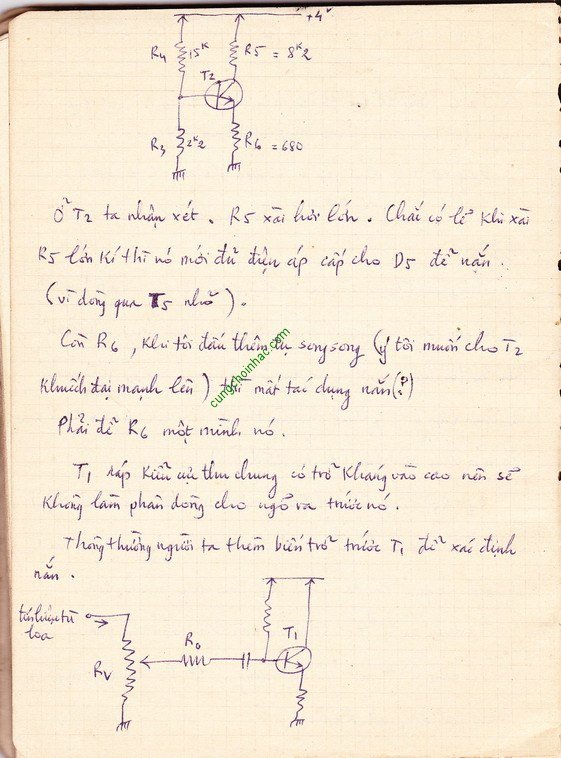 +4V
R4 15K R5 = 8K2
T2
R3 2K2 R6 = 680
Ở T2 ta nhận xét. R5 xài hơi lớn. Chắc có lẽ khi xài
R5 lớn kí thì nó mới đủ điện áp cấp cho D5 để nắn.
(vì dòng qua T5 nhỏ).
Còn R6, khi tôi đấu thêm tụ song song (ý tôi muốn cho T2
khuếch đại mạnh lên) thì mất tác dụng nắn (?)
Phải để R6 một mình nó.
T1 ráp kiểu cực thu chung có trở kháng vào cao nên sẽ
không làm phân dòng cho ngõ ra trước nó.
Thông thường người ta thêm biến trở trước T1 để xác định
nắn.
tín hiệu từ
loa
RV
R0
T1
cungchoinhac.com